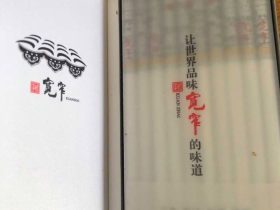 宽窄
KUANZHAI
让世界品味宽窄的味道
KUAN ZHAI